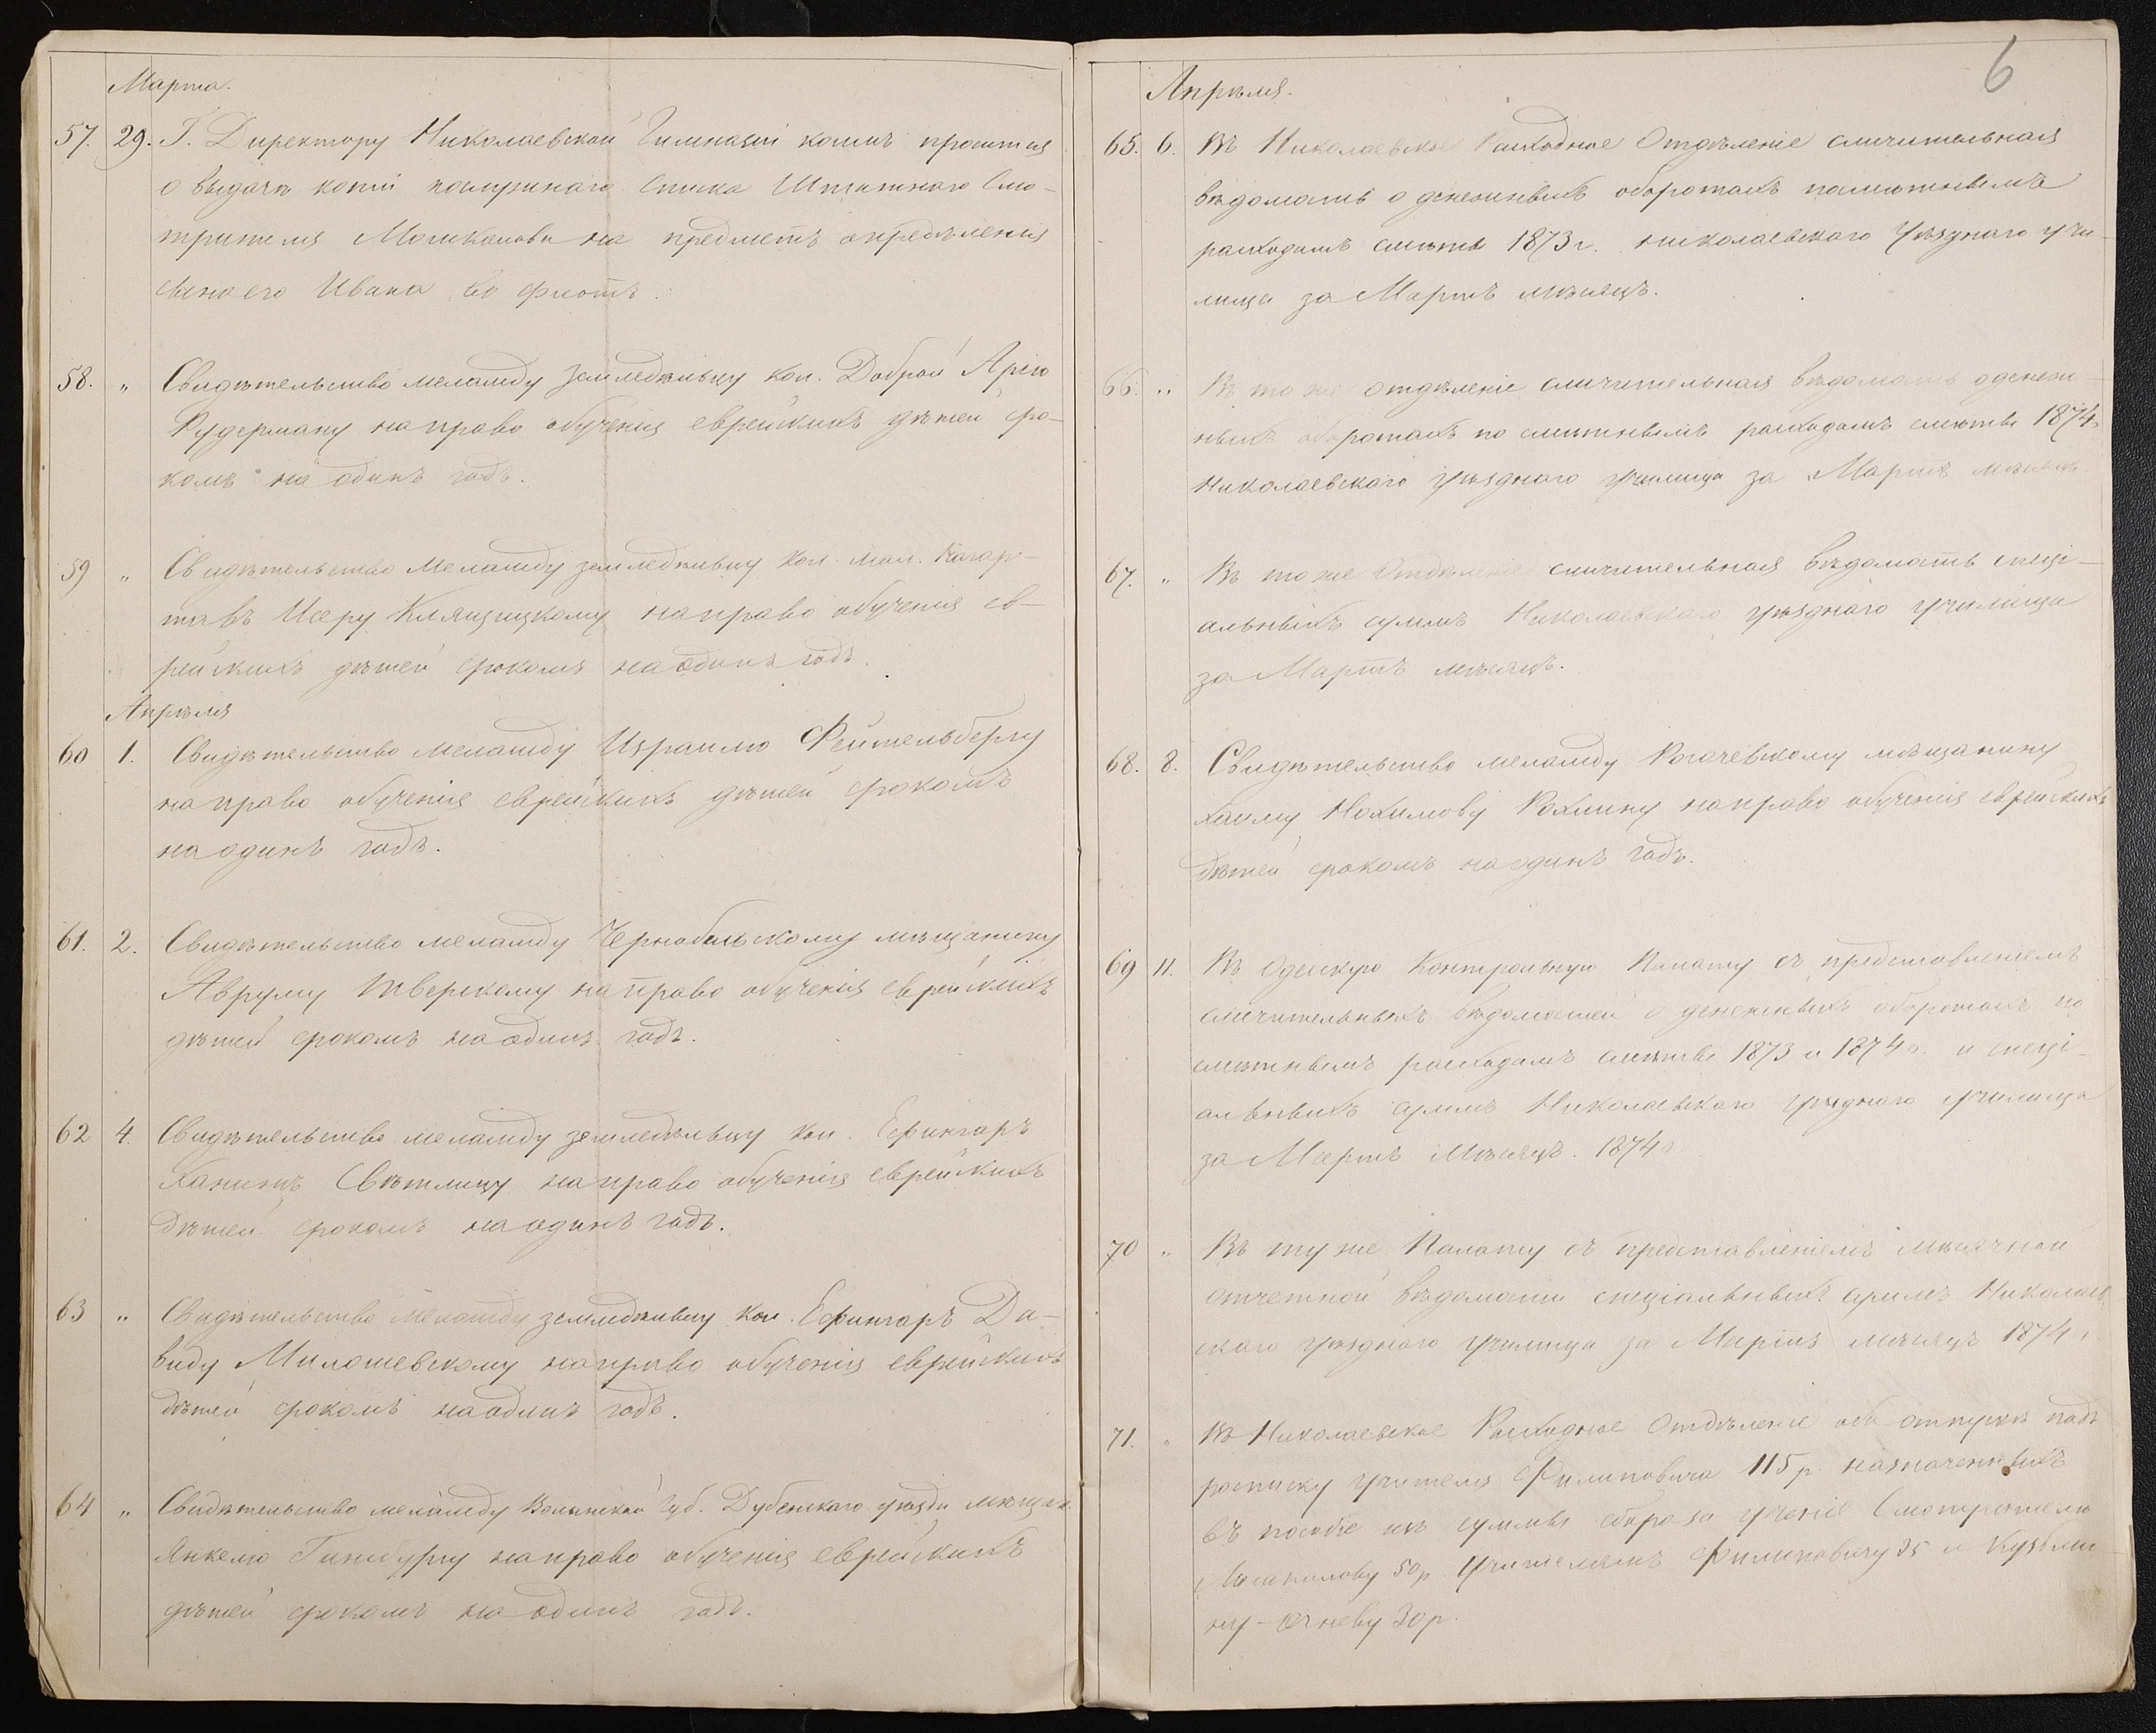 Марта.
57. 29. Г. Директору Николаевской Гимназіи коимъ проситъ
о выдачѣ копіи послужнаго списка Штатнаго Смо-
трителя на предметъ опредѣленія
сына его Ивана во флотъ.
58. „ Свидѣтельство меламду земледѣльцу кол. Доброй Арію
Рудерману на право обученія еврейскихъ дѣтей сро-
комъ на одинъ годъ.
59 „ Свидѣтельство меламду земледѣльцу кол. мал. Нагар-
тавъ Исеру Клящицкому на право обученія ев-
рейскихъ дѣтей срокомъ на одинъ годъ.
Апрѣля
60 1. Свидѣтельство меламду Израилю Фейтельбергу
на право обученія еврейскихъ дѣтей срокомъ
на одинъ годъ.
61. 2. Свидѣтельство меламду Чернобыльскому мѣщанину
Авруму Тверскому на право обученія еврейскихъ
дѣтей срокомъ на одинъ годъ.
62 4. Свидѣтельство меламду земледѣльцу кол. Ефингаръ
Свѣтлицу на право обученія еврейскихъ
дѣтей срокомъ на одинъ годъ.
63 „ Свидѣтельство меламду земледѣльцу кол. Ефингаръ Да-
виду Милошевскому на право обученія еврейскихъ
дѣтей срокомъ на одинъ годъ.
64 „ Свидѣтельство меламду Волынской Губ. Дубенскаго уѣзда мѣщан.
Янкелю Гинсбургу на право обученія еврейскихъ
дѣтей срокомъ на одинъ годъ.
6
Апрѣля.
65. 6. Въ Николаевское Расходное Отдѣленіе сличительная
вѣдомость о денежныхъ оборотахъ по смѣтнымъ
расходамъ смѣты 1873 г. Николаевскаго Уѣзднаго Учи-
лища за Мартъ мѣсяцъ.
66. „ Въ то же отдѣленіе сличительная вѣдомость о денеж-
ныхъ оборотахъ по смѣтнымъ расходамъ смѣты 1874 г.
Николаевскаго уѣзднаго училища за Мартъ мѣсяцъ
67. „ Въ то же Отдѣленіе сличительная вѣдомость спеці-
альныхъ суммъ Николаевскаго уѣзднаго училища
за Мартъ мѣсяцъ.
68. 8. Свидѣтельство меламду Рогачевскому мѣщанину
Хаиму Нохимову Рохлину на право обученія еврейскихъ
дѣтей срокомъ на одинъ годъ.
69 11. Въ Одесскую Контрольную Палату съ представленіемъ
сличительныхъ вѣдомостей о денежныхъ оборотахъ по
смѣтнымъ расходамъ смѣты 1873 и 1874 г. и спеці-
альныхъ суммъ Николаевскаго уѣзднаго училища
за Мартъ мѣсяцъ. 1874 г
70 „ Въ ту же Палату съ представленіемъ мѣсячной
отчетной вѣдомости спеціальныхъ суммъ Николаев-
скаго уѣзднаго училища за Мартъ мѣсяцъ 1874 г
71. „ Въ Николаевское Расходное Отдѣленіе объ отпускѣ подъ
росписку учителя Филиповича 115 р. назначенныхъ
въ пособіе изъ суммы сбора за ученіе Смотрителю
50 р Учителямъ Филиповичу 35 и Кузьми-
ну- 30 р.